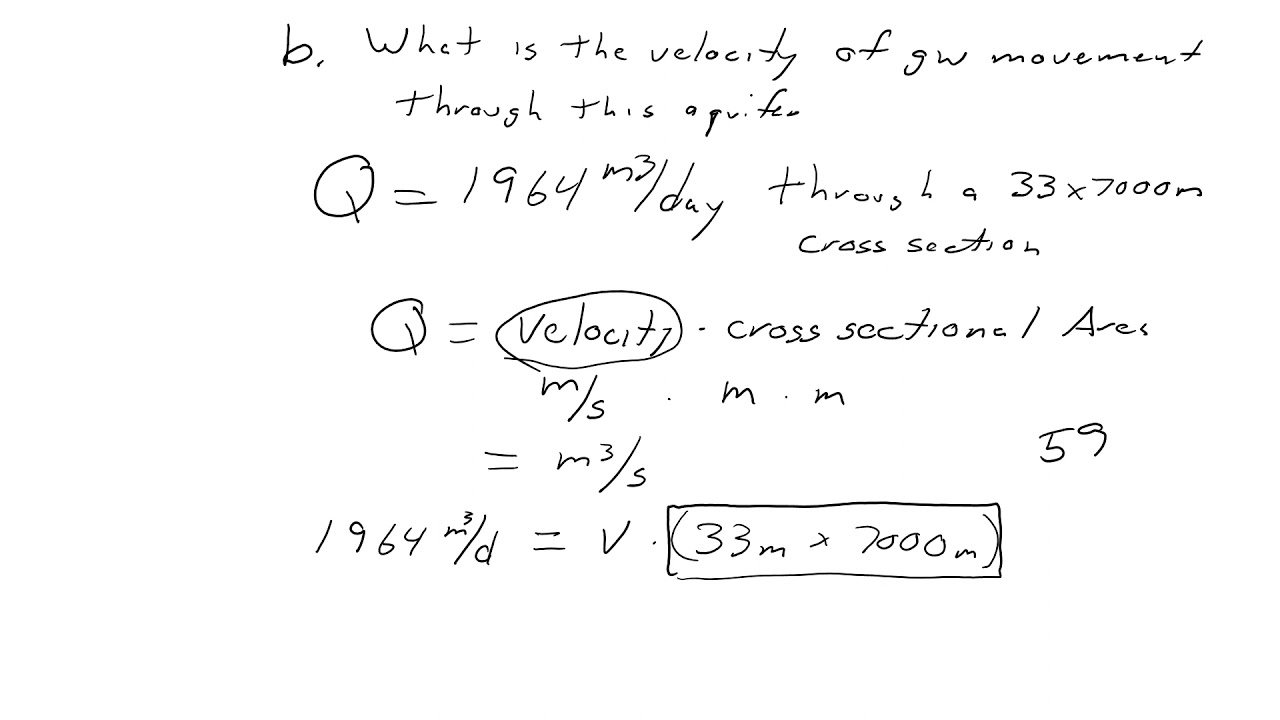 b. What is the velocity of gw movement
through this aquifer
Q = 1964 m³/day through a 33 x 7000m
cross section
Q = velocity · cross sectional Area
m/s · m · m
59
= m³/s
1964 m³/d = V · (33m x 7000m)